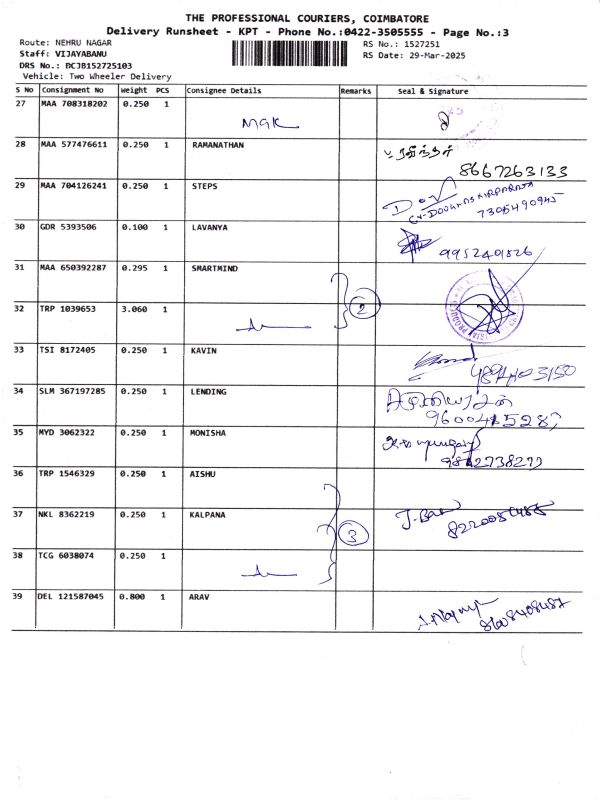 THE PROFESSIONAL COURIERS, COIMBATORE
Delivery Runsheet - KPT - Phone No.:0422-3505555 - Page No.:3
Route: NEHRU NAGAR
RS No.: 1527251
Staff: VIJAYABANU
RS Date: 29-Mar-2025
DRS No.: BCJB152725103
Vehicle: Two Wheeler Delivery
S No Consignment No Weight PCS Consignee Details Remarks Seal & Signature
27 MAA 708318202 0.250 1
MGK
28 MAA 577476611 0.250 1 RAMANATHAN
8667263133
29 MAA 704126241 0.250 1 STEPS
7305490945
30 GDR 5393506 0.100 1 LAVANYA
9952401826
31 MAA 650392287 0.295 1 SMARTMIND
32 TRP 1039653 3.060 1
2
33 TSI 8172405 0.250 1 KAVIN
34 SLM 367197285 0.250 1 LENDING
35 MYD 3062322 0.250 1 MONISHA
36 TRP 1546329 0.250 1 AISHU
37 NKL 8362219 0.250 1 KALPANA
3
38 TCG 6038074 0.250 1
39 DEL 121587045 0.800 1 ARAV
8608408487